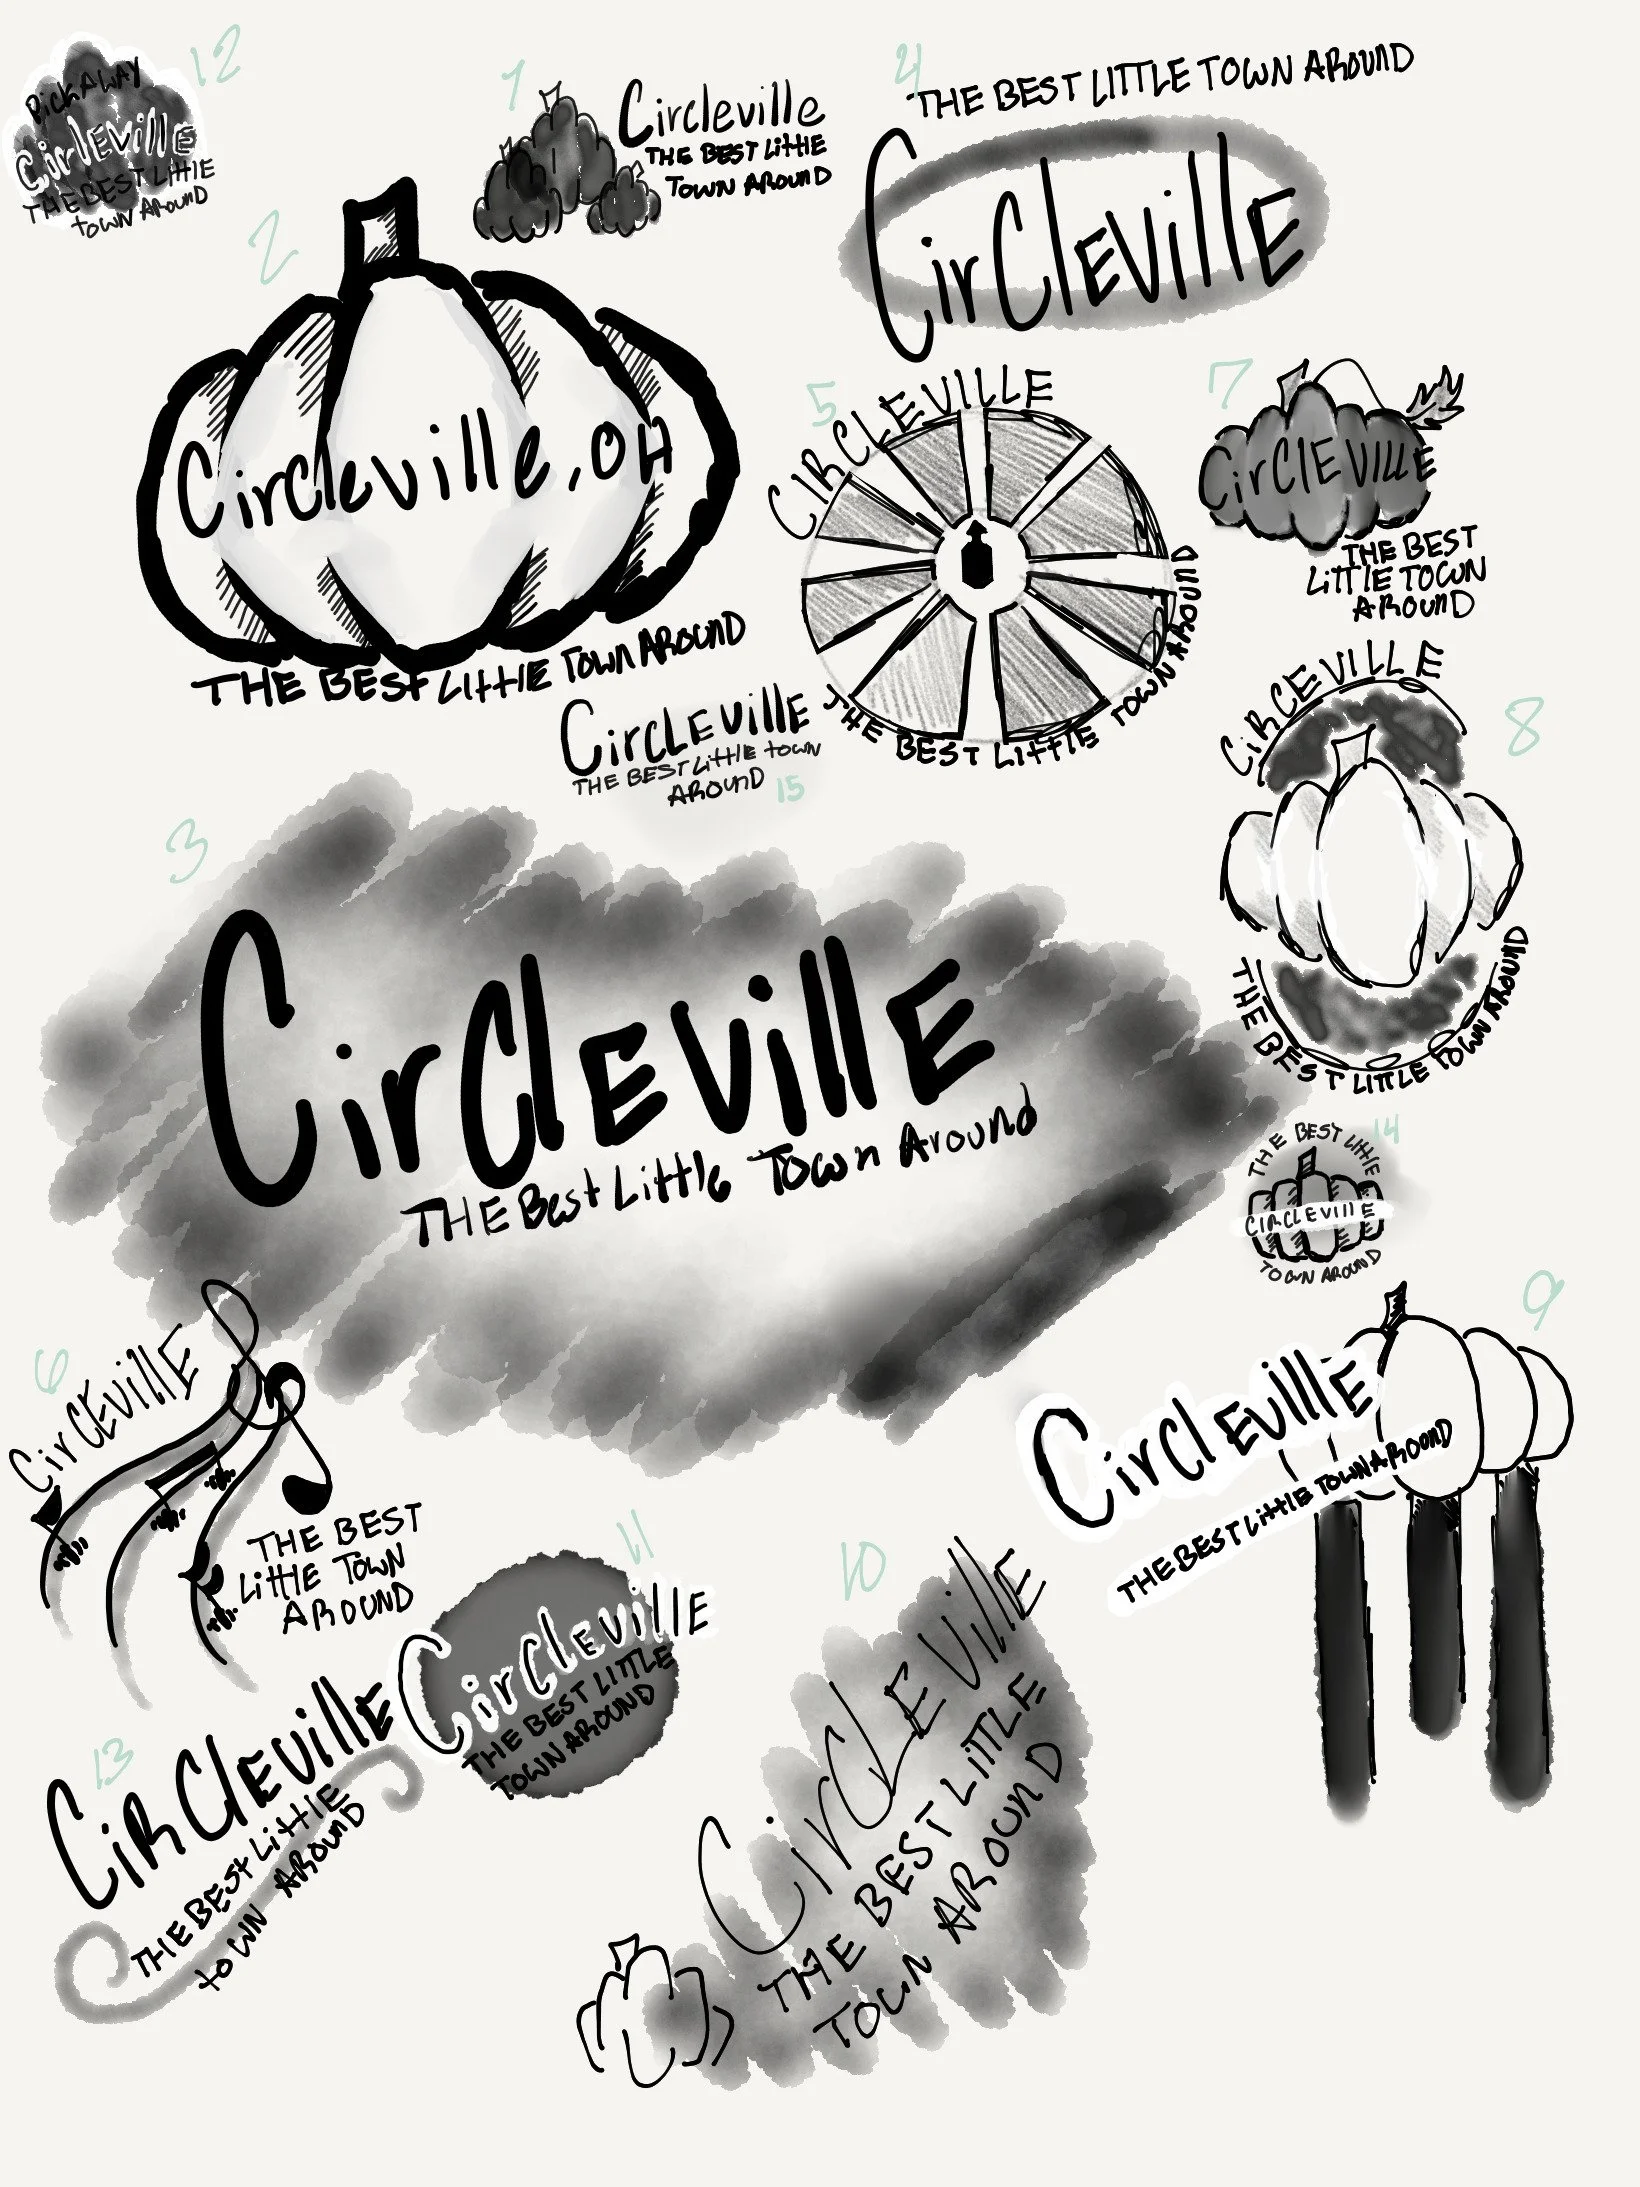 12
PickAWAY
CirclEville
THE BEST Little
town Around
1
Circleville
THE BEST Little
Town Around
4
THE BEST LITTLE TOWN AROUND
CirClEVillE
2
Circleville, OH
THE BEST Little Town AROUND
5
CIRCLEVILLE
THE BEST LITTLE TOWN AROUND
7
CirClEVILLE
THE BEST
LITTLE TOWN
AROUND
CircLEville
THE BEST Little town
AROUND
15
8
CiRCEVILLE
THE BEST LITTLE TOWN AROUND
3
CirClEvillE
THE Best Little Town Around
14
THE BEST Little
CIRCLEVillE
TOWN AROUND
6
CirClEVillE
THE BEST
Little Town
AROUND
9
CirclEvillE
THE BEST Little TOWN AROUND
11
CircleVillE
THE BEST LITTLE
TOWN AROUND
10
CirCLEVillE
THE BEST LITTLE
TOWN AROUND
13
CiRClEVillE
THE BEST LittlE
toWN AROUND